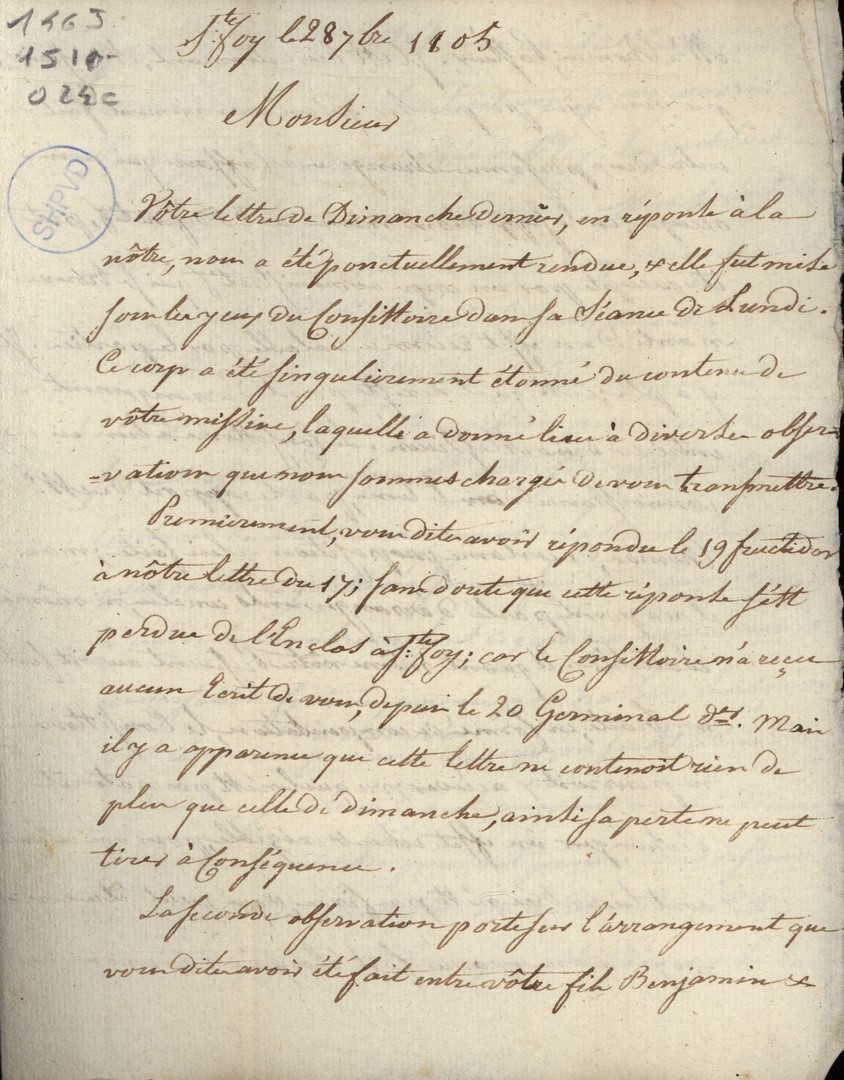 1463
1510-
024c
SHPVD
S:te foy le 28 7bre 1805
Monsieur
Vôtre lettre de Dimanche dernier, en réponse à la
nôtre, nous a été ponctuellement rendue, & elle fut mise
sous les yeux du Consistoire dans sa Séance de Lundi.
Ce corps a été singulierement étonné du contenu de
vôtre missive, laquelle a donné lieu à diverses obser=
=vations que nous sommes chargés de vous transmettre.
Premierement, vous dites avoir répondu le 19 fructidor
à nôtre lettre du 17; sans doute que cette réponse s'est
perdue de l'Enclos à S:te foy; car le Consistoire n'a reçu
aucun Ecrit de vous, depuis le 20 Germinal der. Mais
il y a apparence que cette lettre ne contenoit rien de
plus que celle de dimanche, ainsi sa perte ne peut
tirer à Conséquence.
La seconde observation porte sur l'arrangement que
vous dites avoir été fait entre vôtre fils Benjamin &